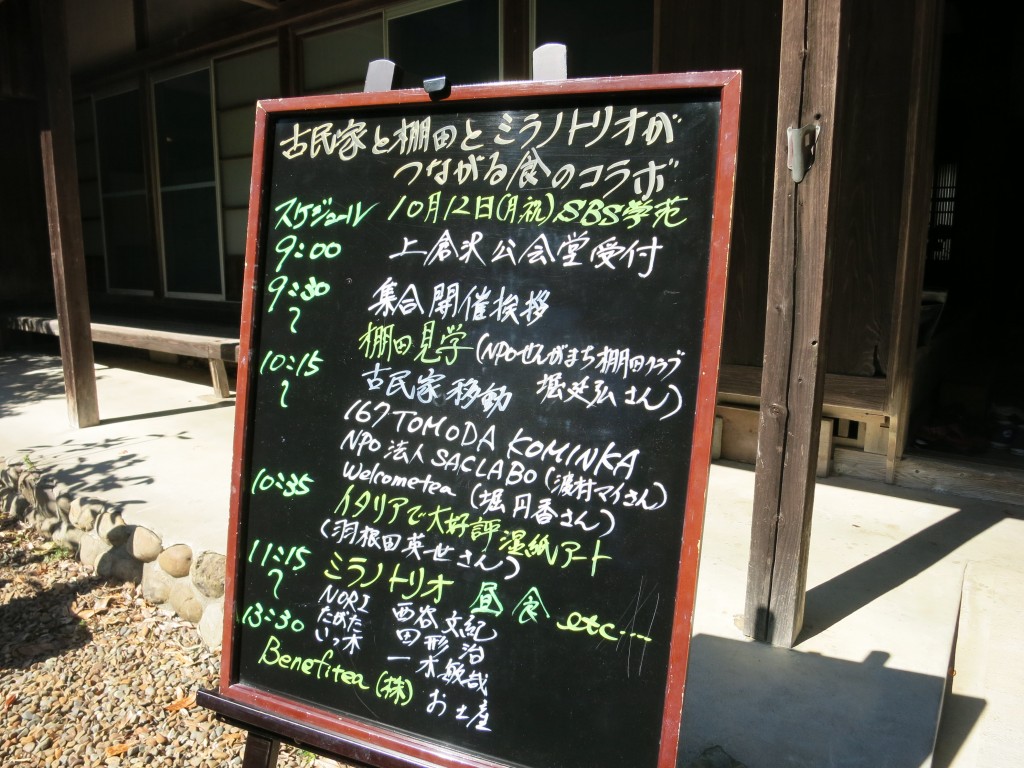 古民家と棚田とミラノトリオが
つながる食のコラボ
スケジュール 10月12日(月,祝)SBS学苑
9:00 上倉沢公会堂受付
9:30 集合開催挨拶
〜 棚田見学(NPOせんがまち棚田クラブ
10:15 堀延弘さん)
〜 古民家移動
167 TOMODA KOMINKA
NPO法人SACLABO(濃村マイさん)
Welcometea(堀円香さん)
10:35 イタリアで大好評湿紙アート
(羽根田英世さん)
11:15 ミラノトリオ 昼食 etc---
〜 NORI 西谷文紀
たがた 田形治
13:30 いっ木 一木敏哉
Benefitea(株) お土産